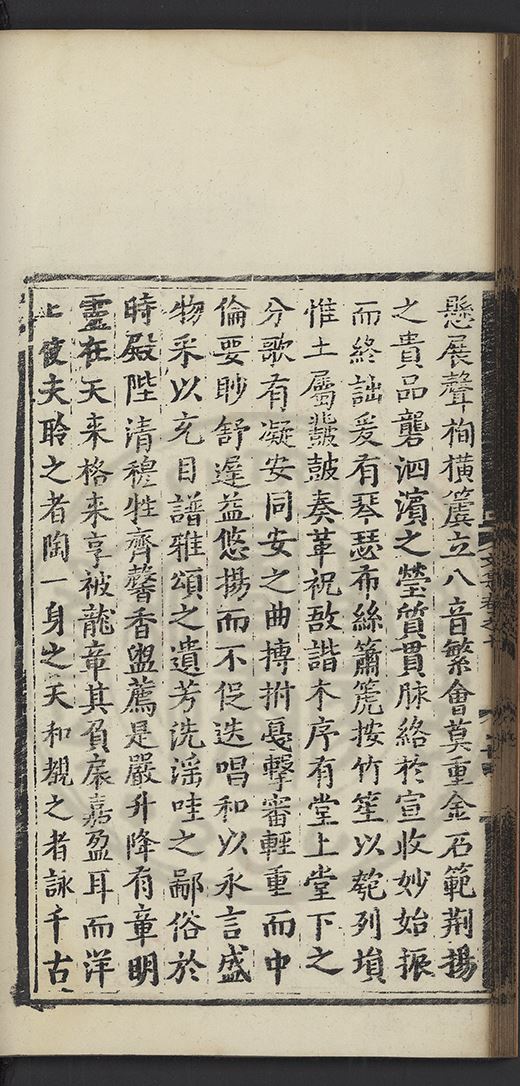 懸展聲栒橫簴立八音繁會莫重金石範荆揚
之貴品礱泗濱之瑩質貫脉絡於宣收妙始振
而終詘爰有琴瑟布絲簫箎按竹笙以匏列塤
惟土屬鼗皷奏革祝敔諧木序有堂上堂下之
分歌有凝安同安之曲摶拊戞擊審輕重而中
倫要眇舒遲益悠揚而不促迭唱和以永言盛
物采以充目譜雅頌之遺芳洗滛哇之鄙俗於
時殿陛清穆牲齊馨香盥薦是嚴升降有章明
靈在天来格来享被龍章其負扆嘉盈耳而洋
上使夫聆之者陶一身之天和覩之者詠千古